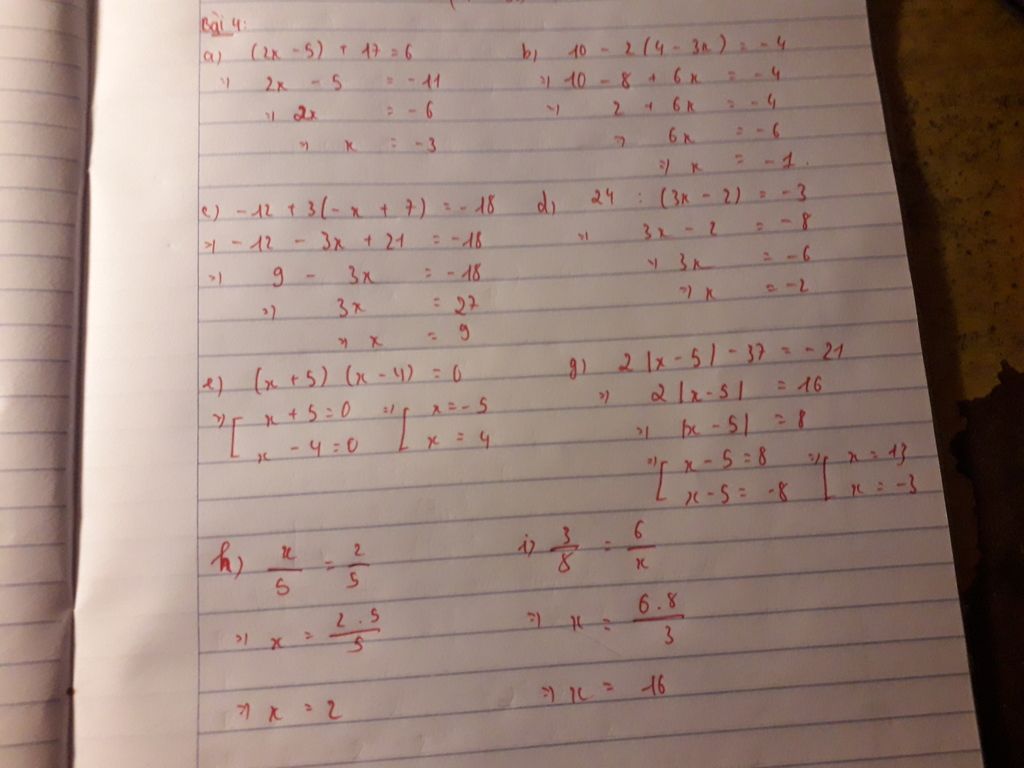 Bài 4:
a) (2x - 5) + 17 = 6
=> 2x - 5 = -11
=> 2x = -6
=> x = -3
b) 10 - 2(4 - 3x) = -4
=> 10 - 8 + 6x = -4
=> 2 + 6x = -4
=> 6x = -6
=> x = -1.
c) -12 + 3(-x + 7) = -18
=> -12 - 3x + 21 = -18
=> 9 - 3x = -18
=> 3x = 27
=> x = 9
d) 24 : (3x - 2) = -3
=> 3x - 2 = -8
=> 3x = -6
=> x = -2
e) (x + 5) (x - 4) = 0
=> [ x + 5 = 0 => [ x = -5
x - 4 = 0 x = 4
g) 2 |x - 5| - 37 = -21
=> 2 |x - 5| = 16
=> |x - 5| = 8
=> [ x - 5 = 8 => [ x = 13
x - 5 = -8 x = -3
h) x/5 = 2/5
=> x = 2.5/5
=> x = 2
i) 3/8 = 6/x
=> x = 6.8/3
=> x = 16